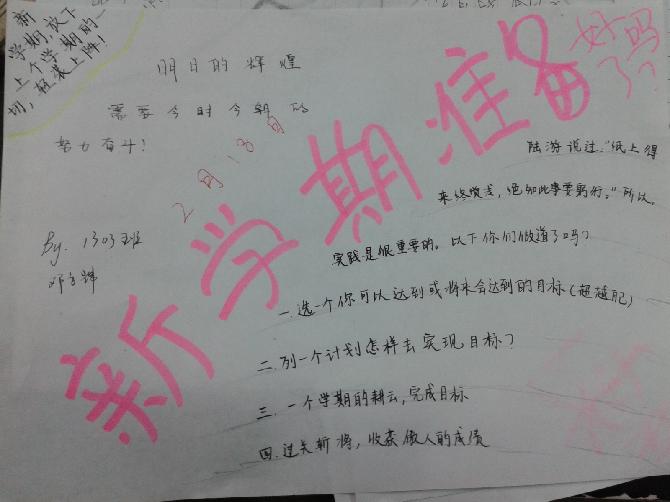 新
学期,放下
上个学期的一
切,轻装上阵!
新学期准备
好吗
了?
明日的辉煌
需要今时今朝的
努力奋斗!
2月18日
By. 1303班
陆游说过:“纸上得
来终觉浅,绝知此事要躬行。”所以,
实践是很重要的。以下你们做道了吗?
一.选一个你可以达到或将来会达到的目标(超越自己)
二.列一个计划怎样去实现目标?
三.一个学期的耕云,完成目标
四.过关斩将,收获傲人的成绩